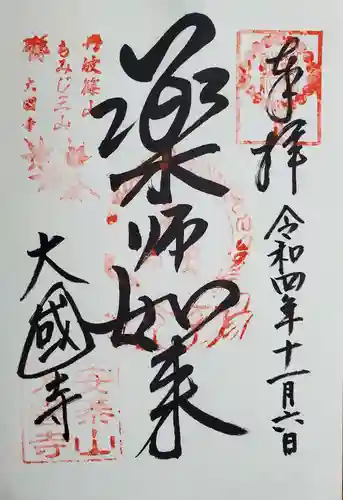 奉拝
令和四年十一月六日
薬師如来
丹波篠山
もみじ三山
大国寺
大國寺
安泰山